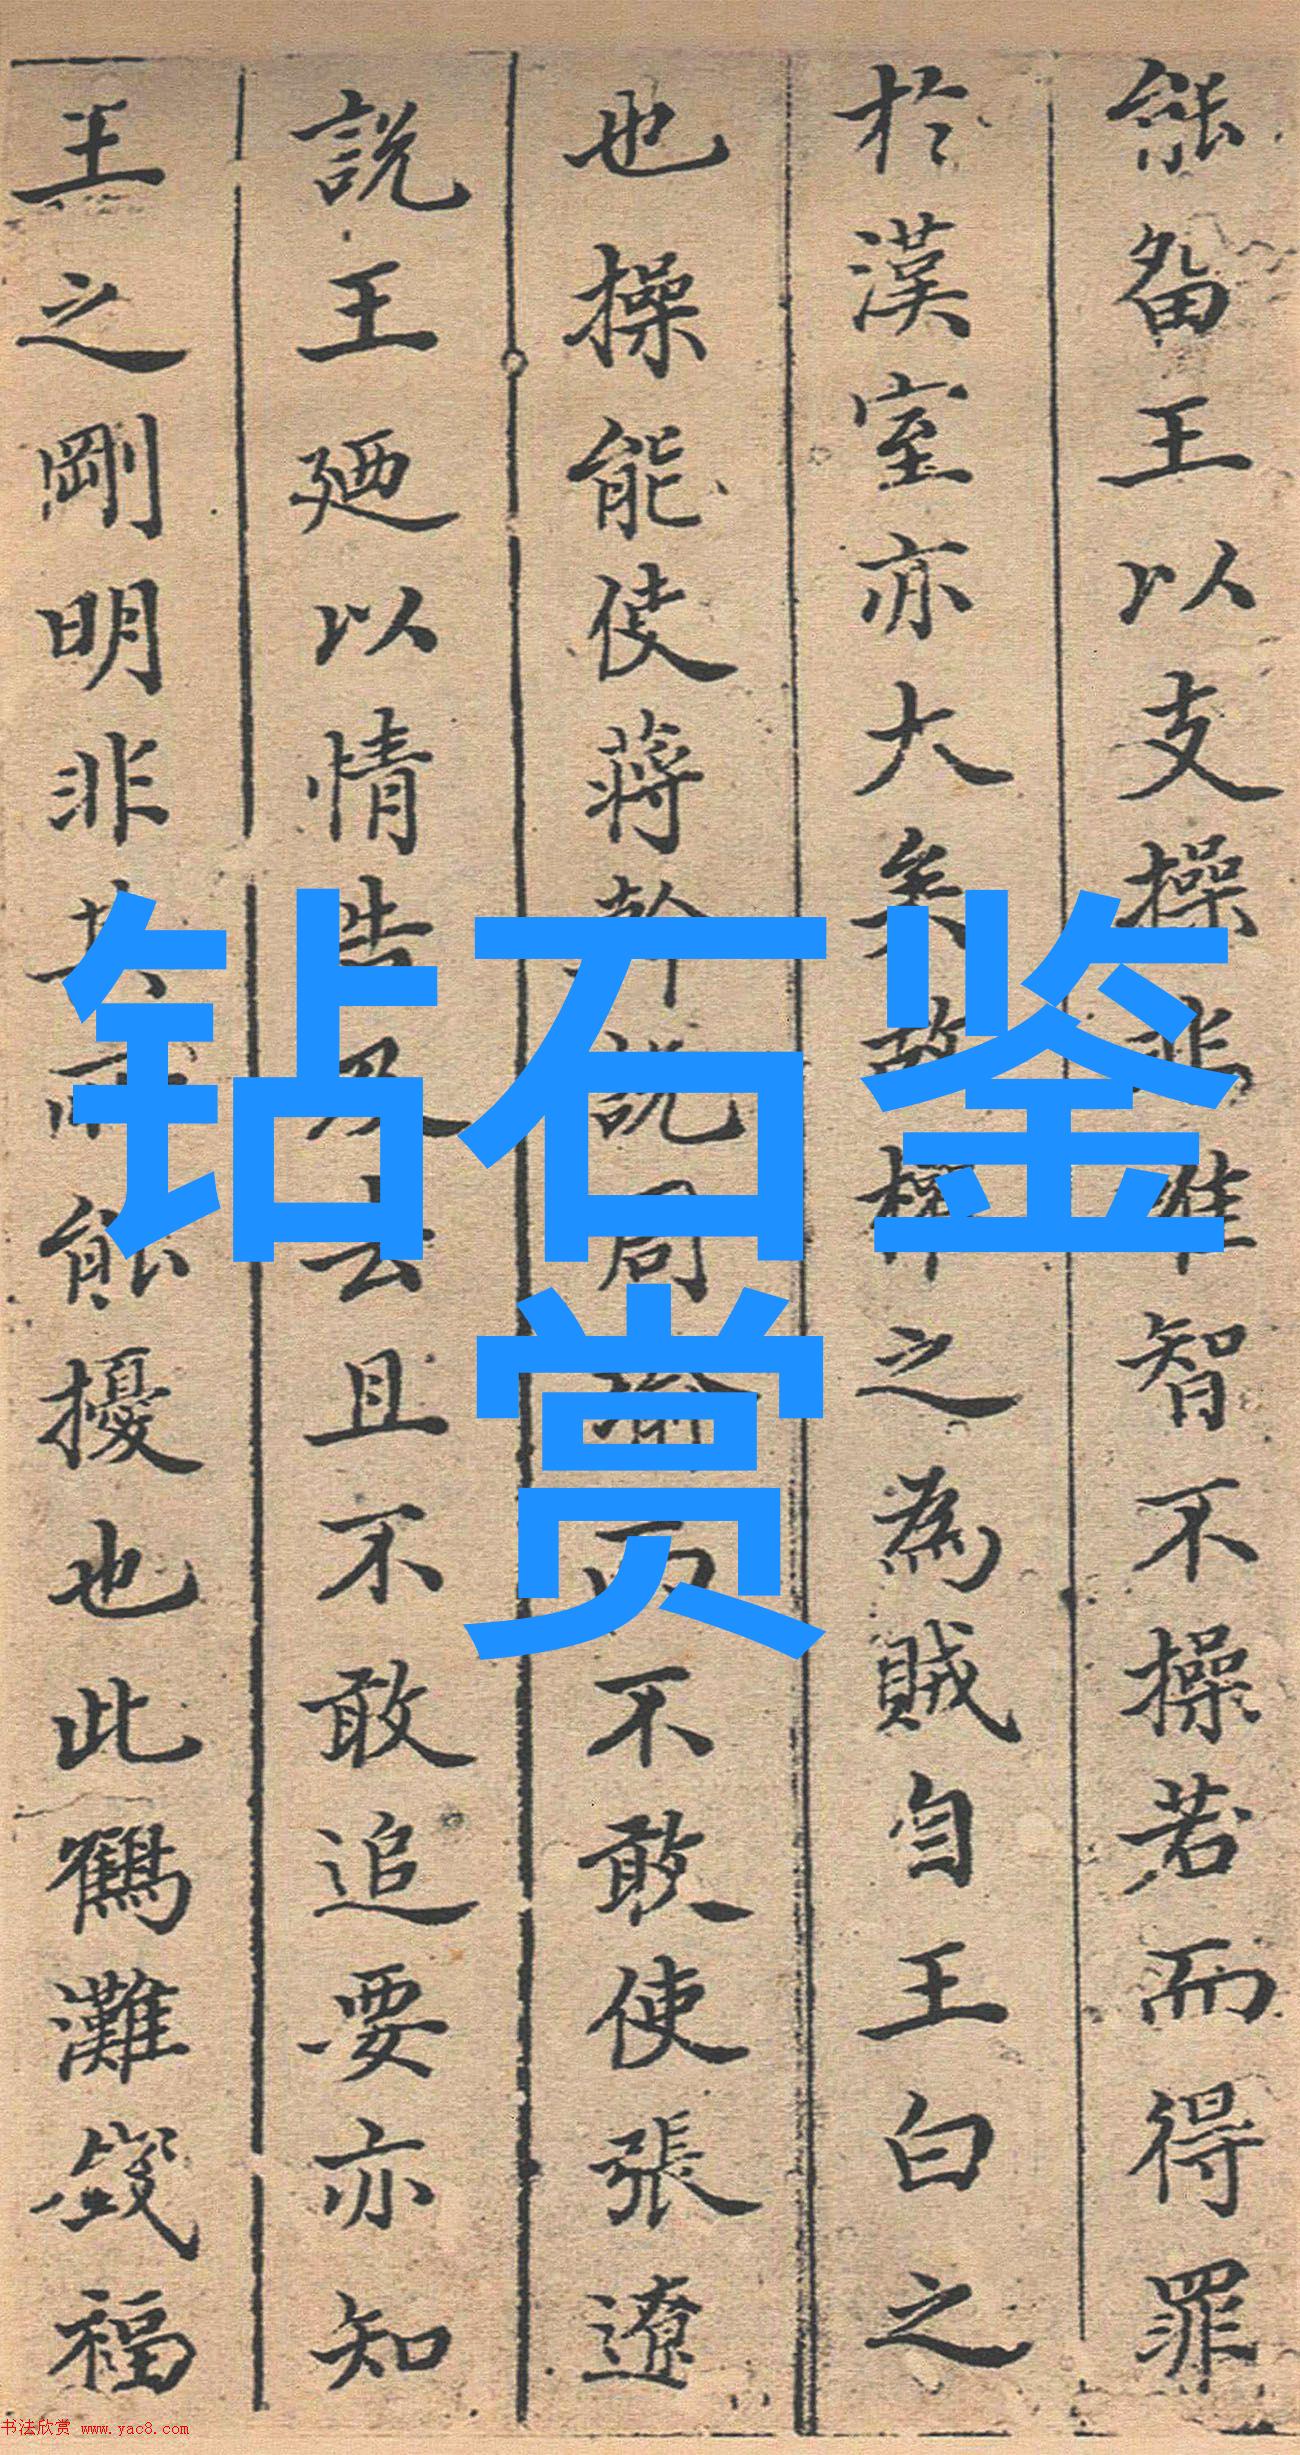 能留王以支操非唯智不操若而得罪
於漢室亦大矣故操之為賊自王白之
也操能使蔣幹說周瑜而不敢使張遼
說王廼以情告及去且不敢追要亦知
王之剛明非其所能擾也此鶴灘錢福
钻石鉴
赏
书法欣赏 www.yac8.com